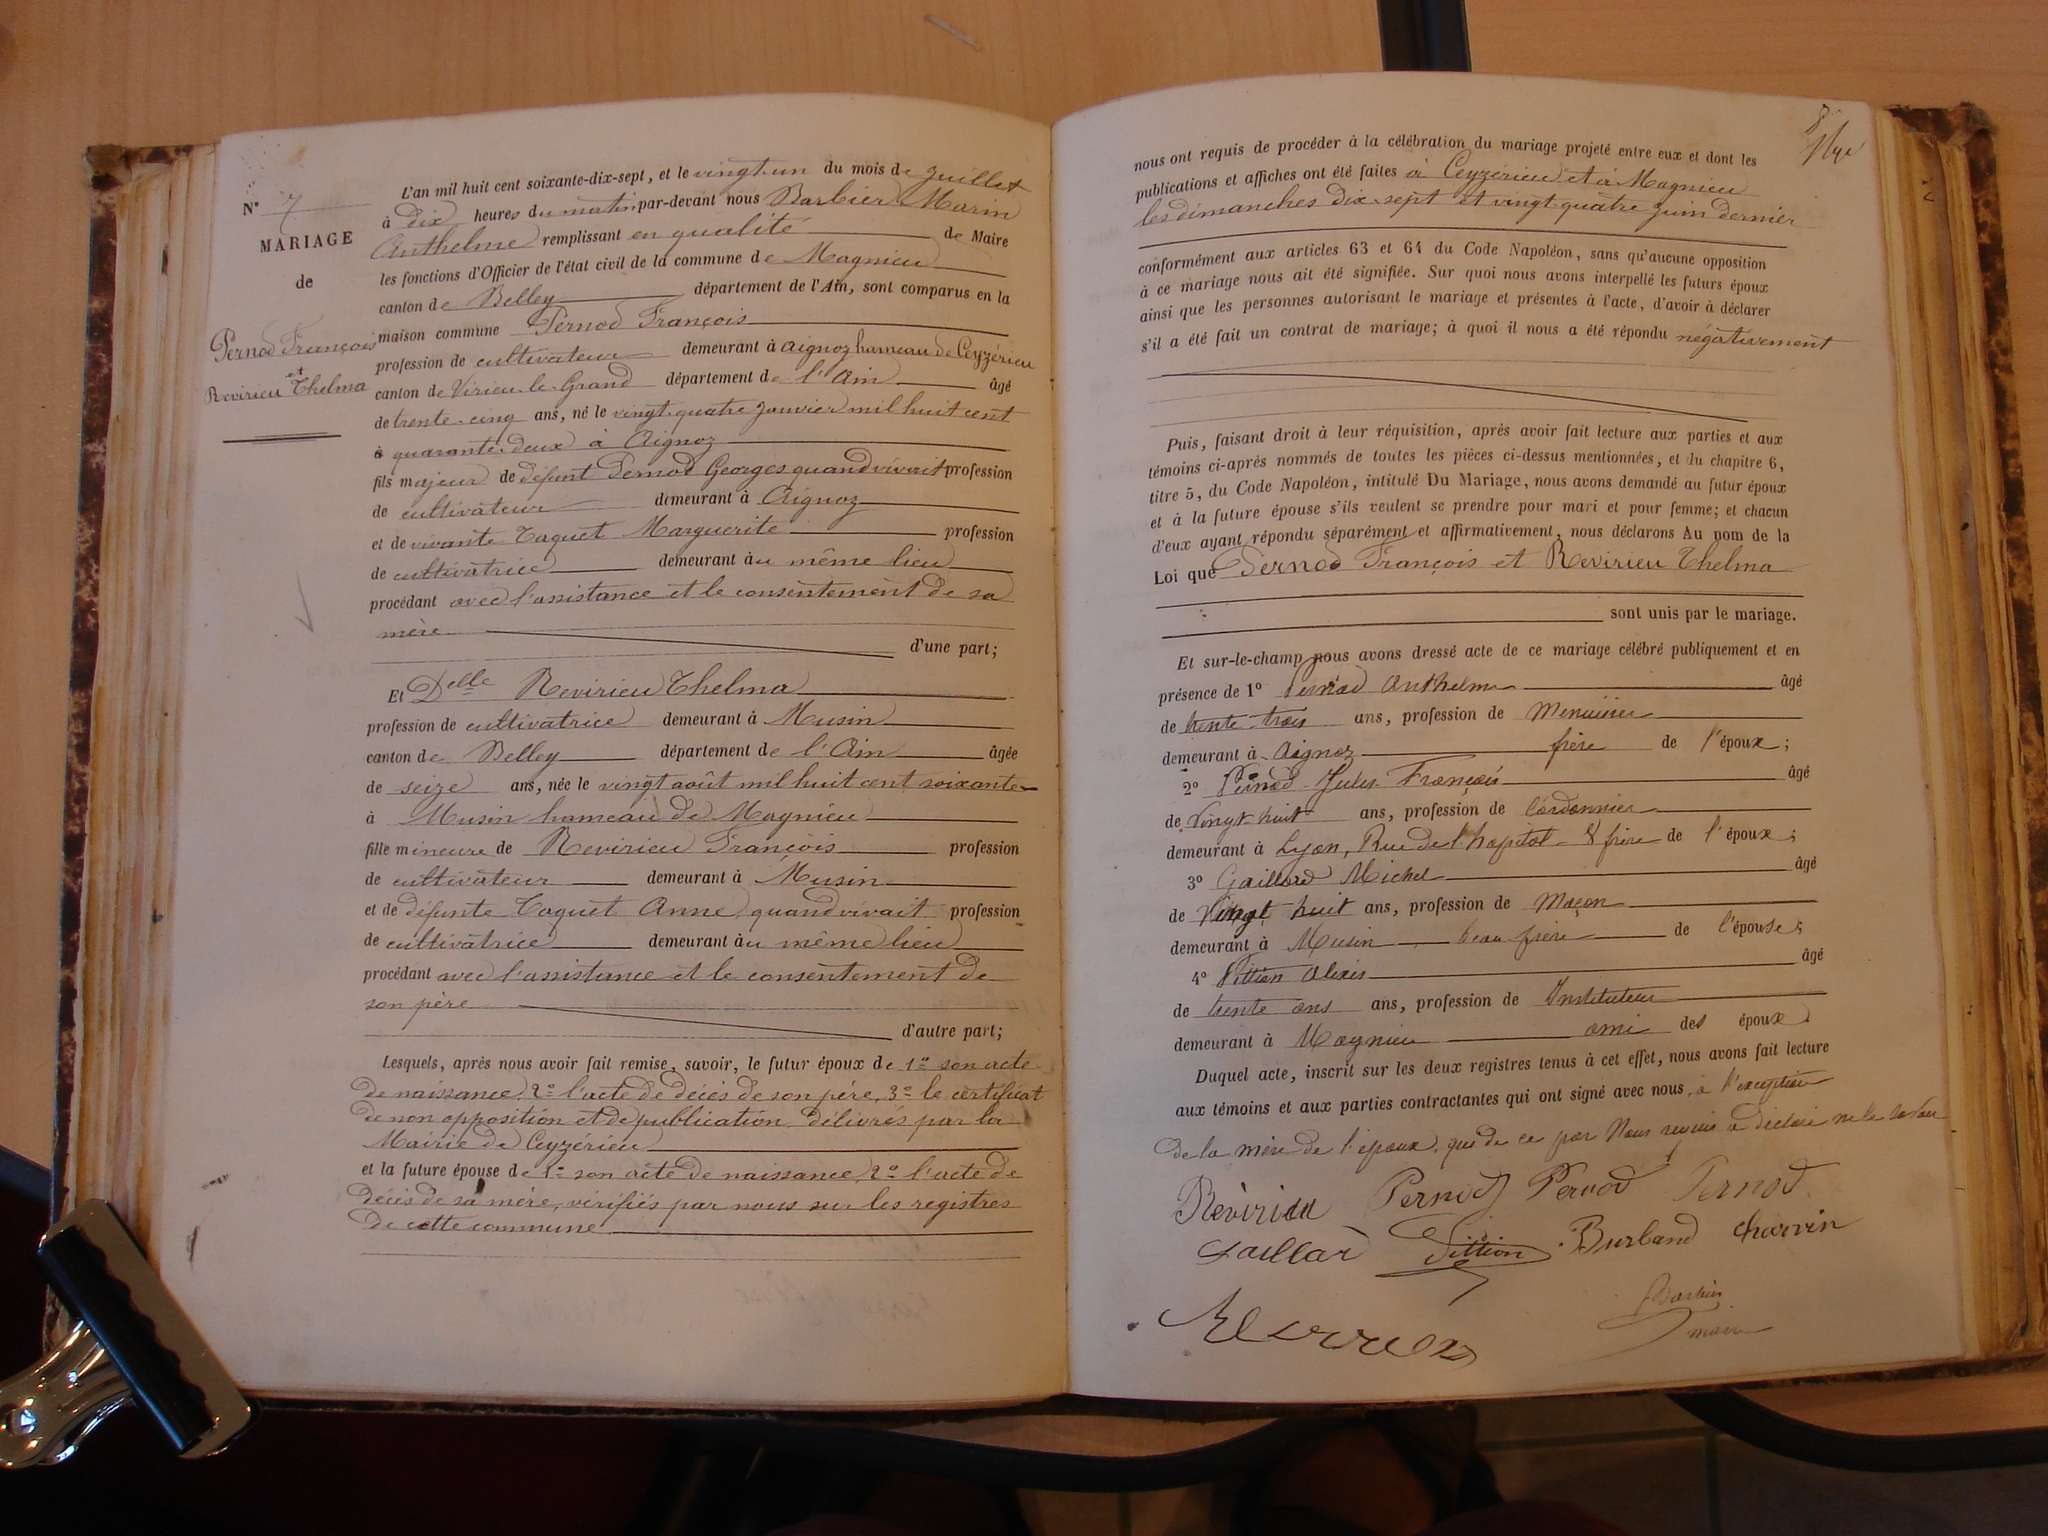 N° 7
MARIAGE
de
Pernod François
et
Revirieu Thelma
L'an mil huit cent soixante-dix-sept, et le vingt-un du mois de Juillet
à dix heures du matin par-devant nous Barbier Marin
Anthelme remplissant en qualité de Maire
les fonctions d'Officier de l'état civil de la commune de Magnieu
canton de Belley département de l'Ain, sont comparus en la
maison commune Pernod François
profession de cultivateur demeurant à Aignoz hameau de Ceyzérieu
canton de Virieu-le-Grand département de l'Ain âgé
de trente-cinq ans, né le vingt-quatre Janvier mil huit cent
à quarante-deux à Aignoz
fils majeur de défunt Pernod Georges quand vivait profession
de cultivateur demeurant à Aignoz
et de vivante Taquet Marguerite profession
de cultivatrice demeurant au même lieu
procédant avec l'assistance et le consentement de sa
mère d'une part;
Et Delle Revirieu Thelma
profession de cultivatrice demeurant à Musin
canton de Belley département de l'Ain âgée
de seize ans, née le vingt août mil huit cent soixante
à Musin hameau de Magnieu
fille mineure de Revirieu François profession
de cultivateur demeurant à Musin
et de défunte Taquet Anne quand vivait profession
de cultivatrice demeurant au même lieu
procédant avec l'assistance et le consentement de
son père
d'autre part;
Lesquels, après nous avoir fait remise, savoir, le futur époux de 1° son acte
de naissance, 2° l'acte de décès de son père, 3° le certificat
de non opposition et de publication délivrés par la
Mairie de Ceyzérieu
et la future épouse de 1° son acte de naissance, 2° l'acte de
décès de sa mère, vérifiés par nous sur les registres
de cette commune
8
nous ont requis de procéder à la célébration du mariage projeté entre eux et dont les
publications et affiches ont été faites à Ceyzérieu et à Magnieu
les dimanches dix-sept et vingt-quatre Juin dernier
conformément aux articles 63 et 64 du Code Napoléon, sans qu'aucune opposition
à ce mariage nous ait été signifiée. Sur quoi nous avons interpellé les futurs époux
ainsi que les personnes autorisant le mariage et présentes à l'acte, d'avoir à déclarer
s'il a été fait un contrat de mariage; à quoi il nous a été répondu négativement
Puis, faisant droit à leur réquisition, après avoir fait lecture aux parties et aux
témoins ci-après nommés de toutes les pièces ci-dessus mentionnées, et du chapitre 6,
titre 5, du Code Napoléon, intitulé Du Mariage, nous avons demandé au futur époux
et à la future épouse s'ils veulent se prendre pour mari et pour femme; et chacun
d'eux ayant répondu séparément et affirmativement, nous déclarons Au nom de la
Loi que Pernod François et Revirieu Thelma
sont unis par le mariage.
Et sur-le-champ nous avons dressé acte de ce mariage célébré publiquement et en
présence de 1° Pernod Anthelme âgé
de trente-trois ans, profession de Menuisier
demeurant à Aignoz frère de l'époux;
2° Pernod Jules François âgé
de Vingt-huit ans, profession de Cordonnier
demeurant à Lyon, Rue de l'hopital 8 frère de l'époux;
3° Gaillard Michel âgé
de Vingt huit ans, profession de Maçon
demeurant à Musin beau frère de l'épouse;
4° Vittion Alexis âgé
de trente ans ans, profession de Instituteur
demeurant à Magnieu ami des époux.
Duquel acte, inscrit sur les deux registres tenus à cet effet, nous avons fait lecture
aux témoins et aux parties contractantes qui ont signé avec nous, à l'exception
de la mère de l'époux, qui de ce par Nous requise a déclaré ne le savoir
Révirieu Pernod Pernod Pernod
Gaillar Vittion Burland Charvin
Barbier
maire